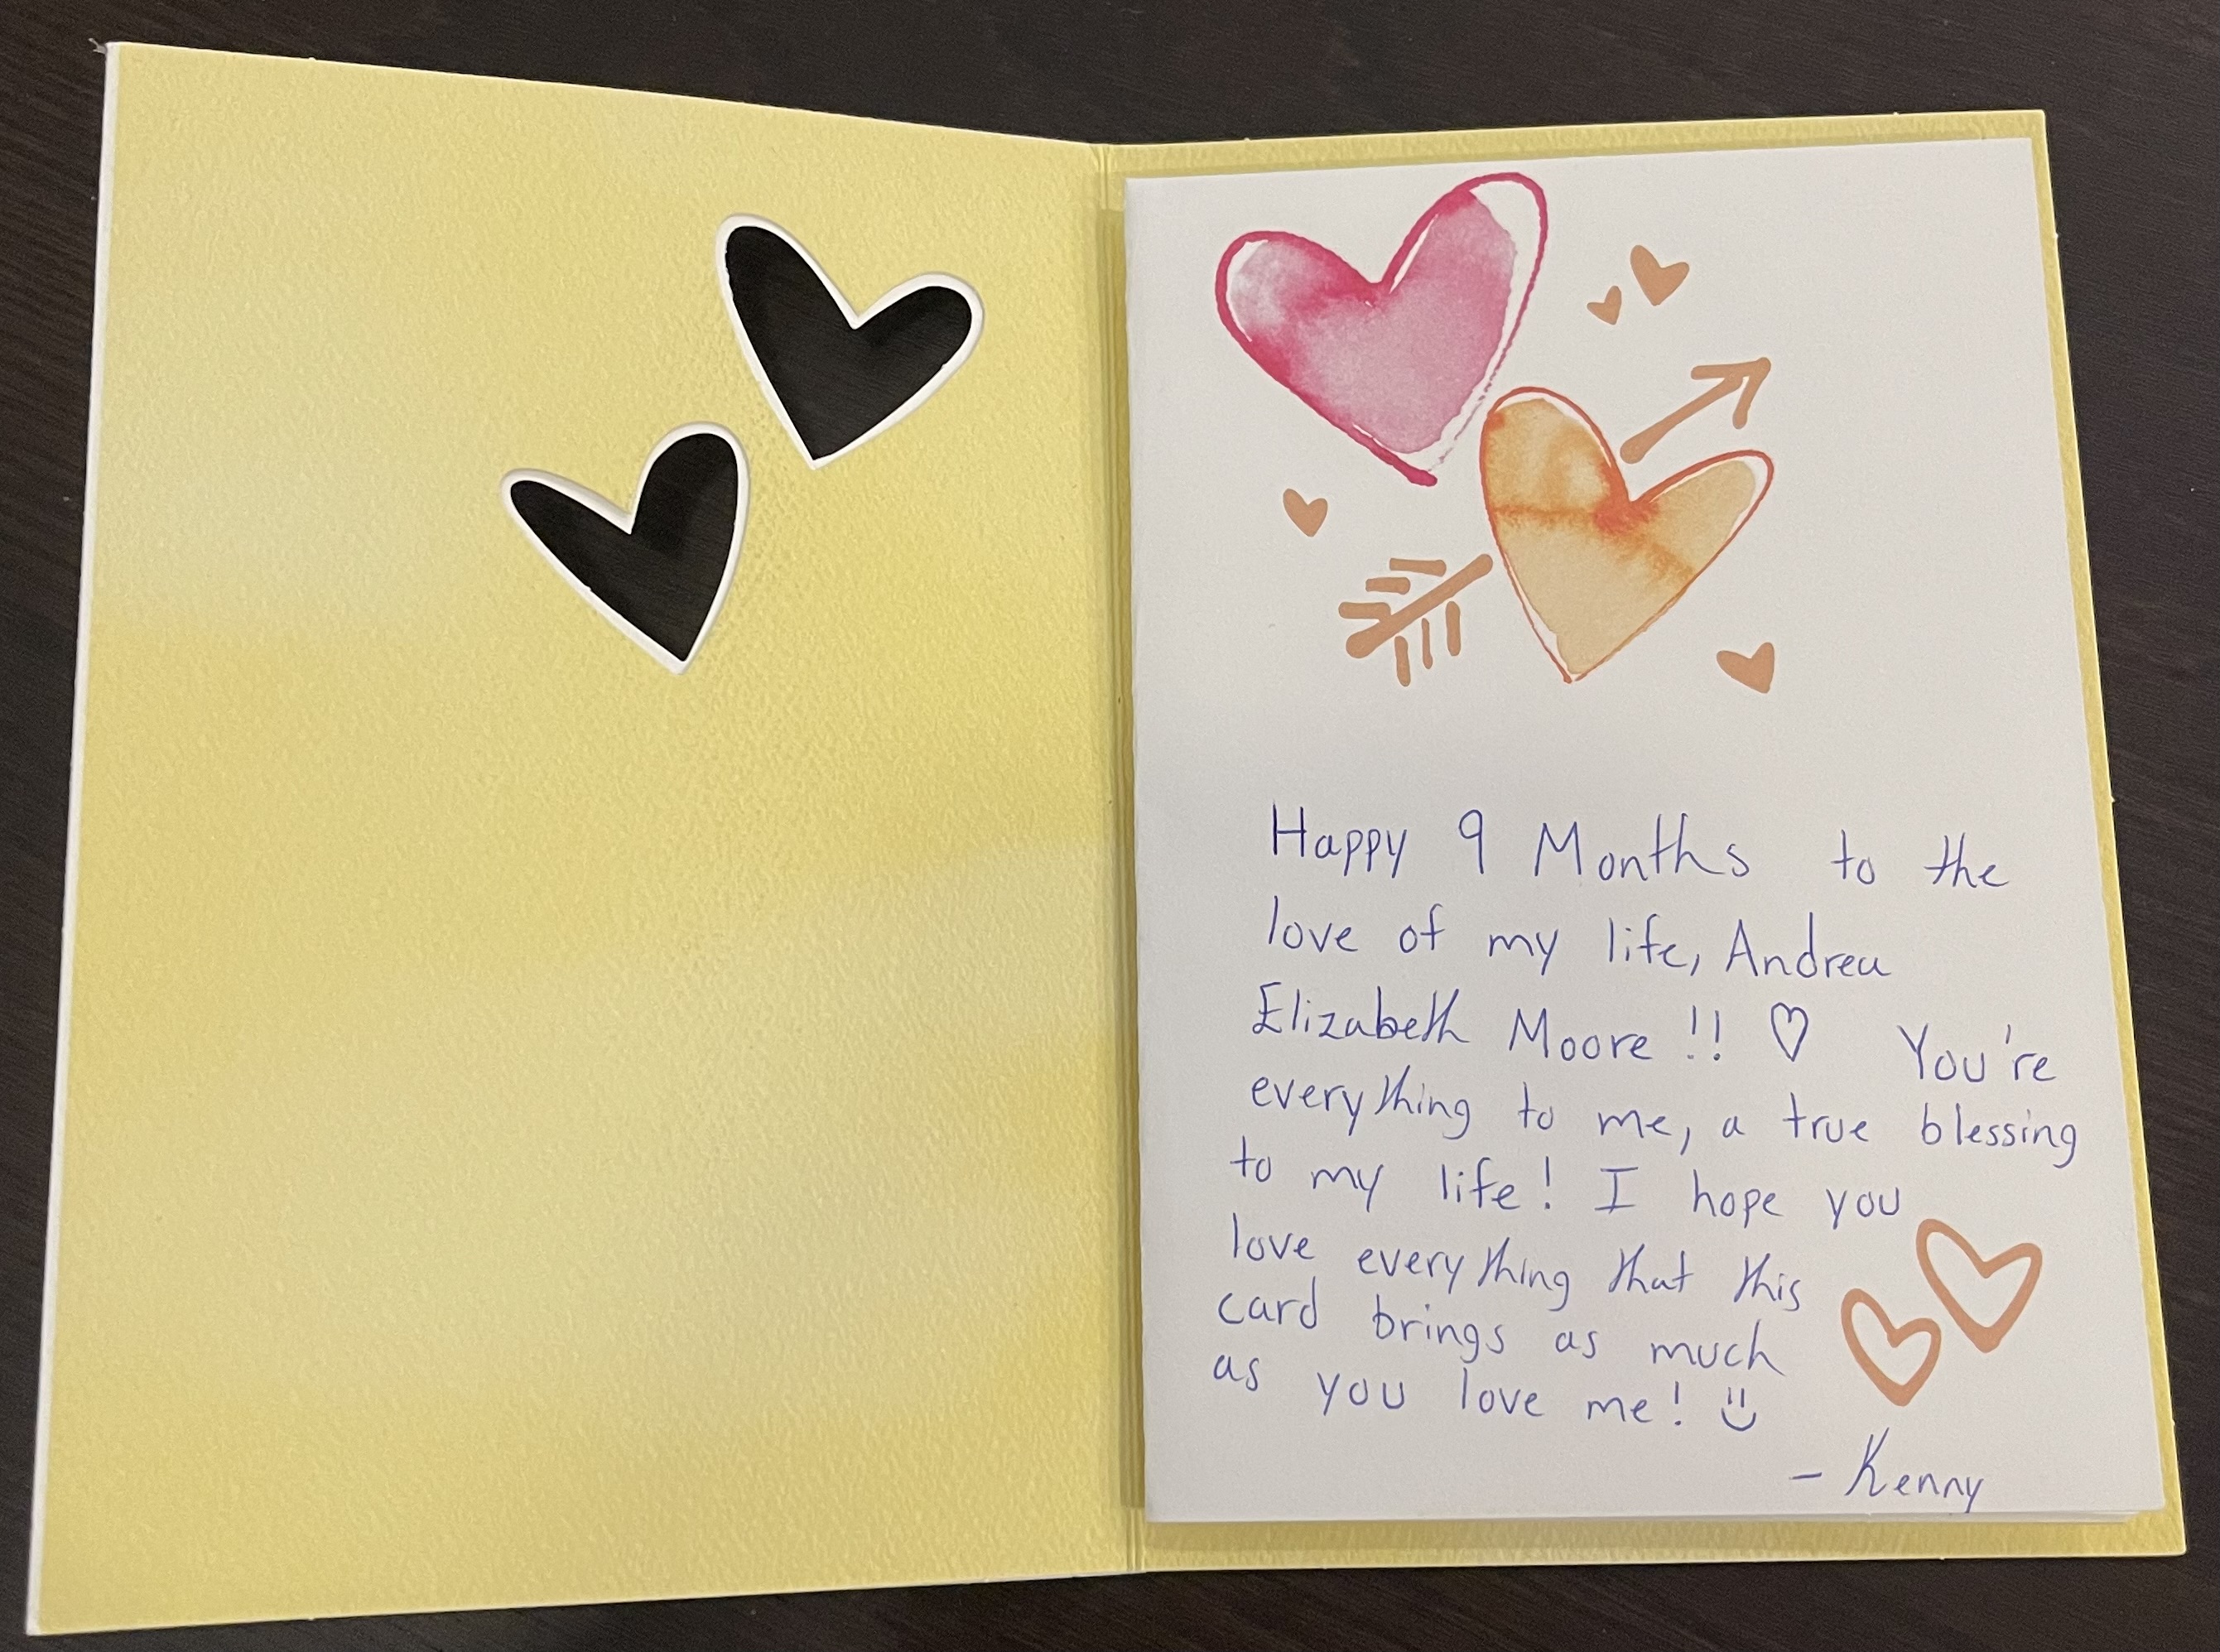 Happy 9 Months to the
love of my life, Andrea
Elizabeth Moore!! ♡ You're
everything to me, a true blessing
to my life! I hope you
love everything that this
card brings as much
as you love me! :)
- Kenny